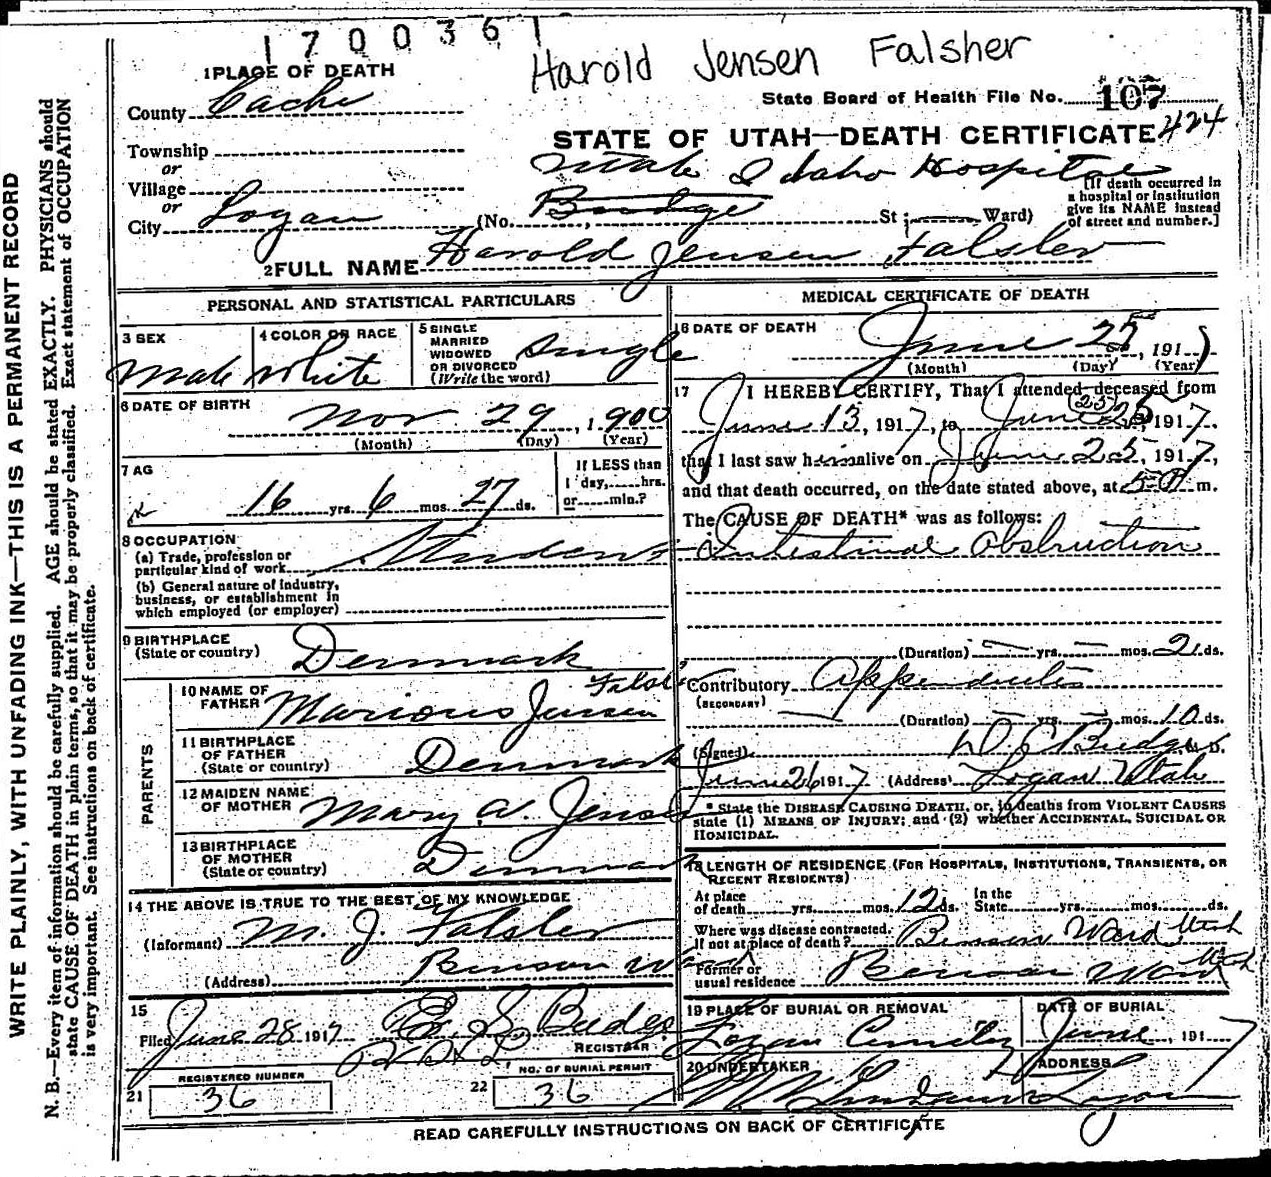 1700361
Harold Jensen Falsher
1 PLACE OF DEATH
County Cache
State Board of Health File No. 107
STATE OF UTAH—DEATH CERTIFICATE 424
Township
or
Village
or
City Logan
Utah Idaho Hospital
(No. Budge St; Ward)
[If death occurred in a hospital or institution give its NAME instead of street and number.]
2 FULL NAME Harold Jensen Falsler
PERSONAL AND STATISTICAL PARTICULARS
3 SEX Male
4 COLOR OR RACE White
5 SINGLE MARRIED WIDOWED OR DIVORCED (Write the word) Single
6 DATE OF BIRTH
Nov 29, 1900
(Month) (Day) (Year)
7 AG
16 yrs. 6 mos. 27 ds.
If LESS than 1 day, hrs. or min.?
8 OCCUPATION
(a) Trade, profession or particular kind of work Student
(b) General nature of industry, business, or establishment in which employed (or employer)
9 BIRTHPLACE (State or country) Denmark
PARENTS
10 NAME OF FATHER Marious Jensen Falsl
11 BIRTHPLACE OF FATHER (State or country) Denmark
12 MAIDEN NAME OF MOTHER Mary A. Jensen
13 BIRTHPLACE OF MOTHER (State or country) Denmark
14 THE ABOVE IS TRUE TO THE BEST OF MY KNOWLEDGE
(Informant) M. J. Falsler
(Address) Benson Ward
15
Filed June 28 1917
REGISTRAR
REGISTERED NUMBER
21 36
NO. OF BURIAL PERMIT
22 36
MEDICAL CERTIFICATE OF DEATH
16 DATE OF DEATH
June 25, 191
(Month) (Day) (Year)
17 I HEREBY CERTIFY, That I attended deceased from
June 13, 1917, to June 25 (25) 1917.
that I last saw him alive on June 25, 1917,
and that death occurred, on the date stated above, at 5 P m.
The CAUSE OF DEATH* was as follows:
Intestinal Obstruction
(Duration) yrs. mos. 2 ds.
Contributory Appendicitis
(SECONDARY)
(Duration) yrs. mos. 10 ds.
(Signed) D C Budge, M. D.
June 26 1917 (Address) Logan Utah
* State the DISEASE CAUSING DEATH, or, in deaths from VIOLENT CAUSES
state (1) MEANS OF INJURY; and (2) whether ACCIDENTAL, SUICIDAL OR
HOMICIDAL.
18 LENGTH OF RESIDENCE (FOR HOSPITALS, INSTITUTIONS, TRANSIENTS, OR
RECENT RESIDENTS)
At place of death yrs. mos. 12 ds. In the State yrs. mos. ds.
Where was disease contracted. If not at place of death? Benson Ward Utah
Former or usual residence Benson Ward Utah
19 PLACE OF BURIAL OR REMOVAL Logan Cemetery
DATE OF BURIAL June, 1917
20 UNDERTAKER
ADDRESS Logan
READ CAREFULLY INSTRUCTIONS ON BACK OF CERTIFICATE
WRITE PLAINLY, WITH UNFADING INK—THIS IS A PERMANENT RECORD
N. B.—Every item of information should be carefully supplied. AGE should be stated EXACTLY. PHYSICIANS should
state CAUSE OF DEATH in plain terms, so that it may be properly classified. Exact statement of OCCUPATION
is very important. See instructions on back of certificate.